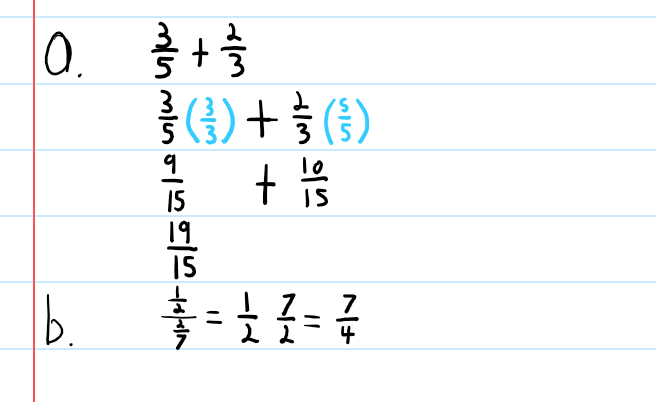 a. 3/5 + 2/3
3/5 (3/3) + 2/3 (5/5)
9/15 + 10/15
19/15
b. (1/2)/(2/7) = 1/2 7/2 = 7/4